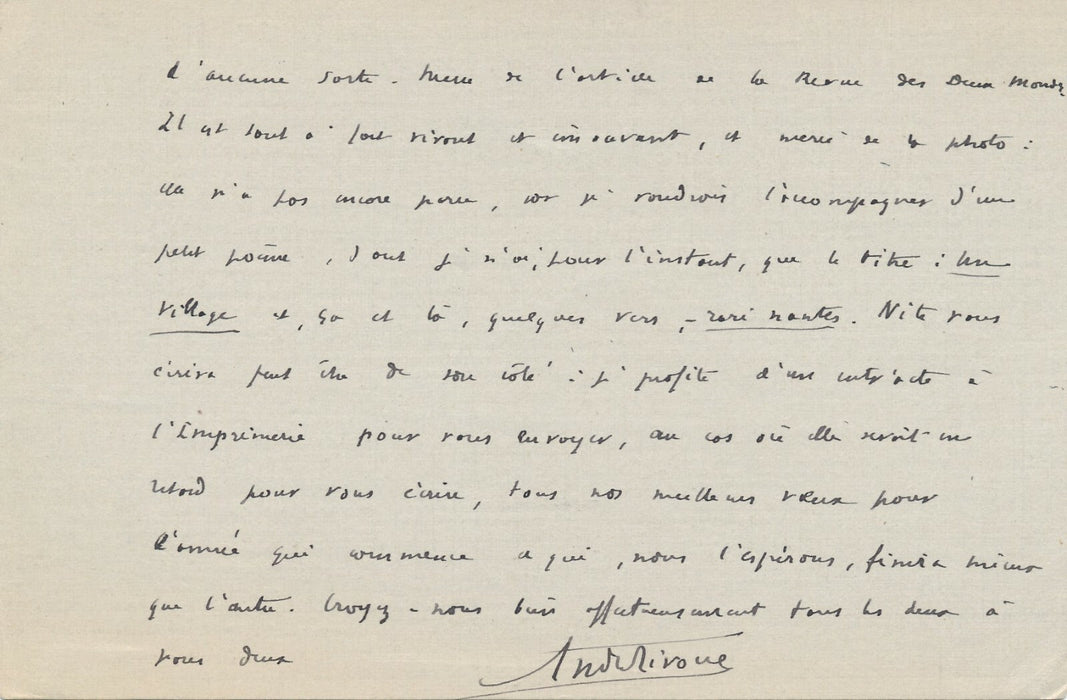 d'aucune sorte. Merci de l'article de la Revue des Deux Mondes
Il est tout à fait vivant et émouvant, et merci de la photo :
elle n'a pas encore paru, car je voudrais l'accompagner d'un
petit poème, dont je n'ai, pour l'instant, que le titre : Un
Village et, ça et là, quelques vers, - rari nantes. Nite vous
écrira peut être de son côté : je profite d'un entr'acte à
l'Imprimerie pour vous envoyer, au cas où elle serait en
retard pour vous écrire, tous nos meilleurs vœux pour
l'année qui commence et qui, nous l'espérons, finira mieux
que l'autre. Croyez-nous bien affectueusement tous les deux à
vous deux
André Rivoire